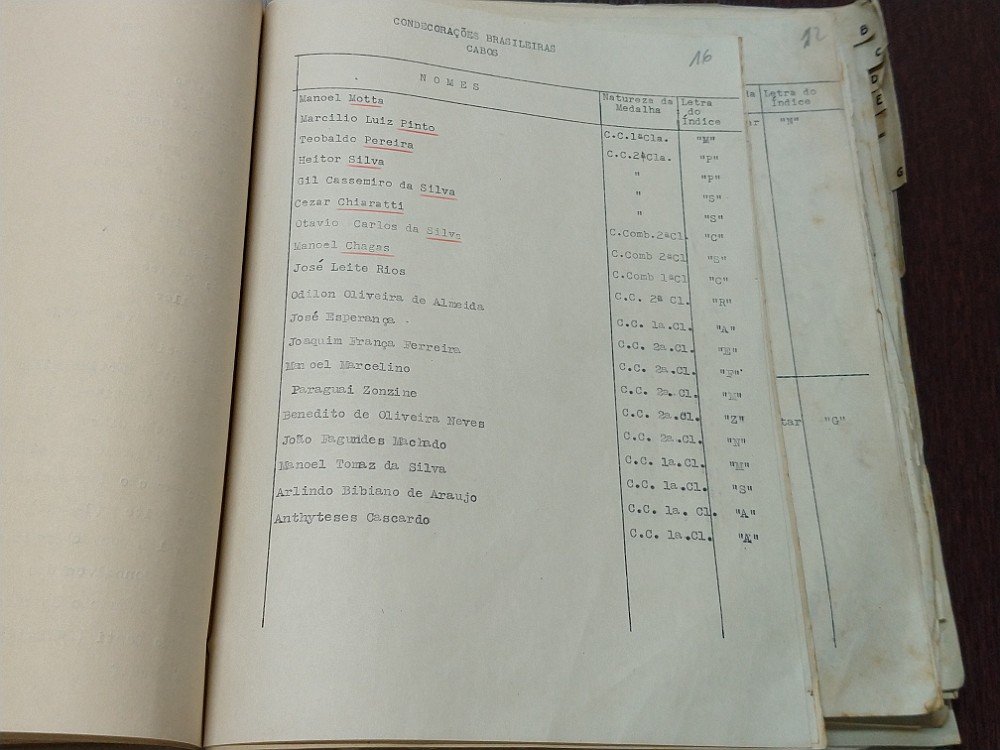 CONDECORAÇÕES BRASILEIRAS
CABOS
16
12
N O M E S
Natureza da Medalha
Letra do Índice
Manoel Motta C.C.1ªCla. "M"
Marcilio Luiz Pinto C.C.2ªCla. "P"
Teobaldo Pereira " "P"
Heitor Silva " "S"
Gil Cassemiro da Silva " "S"
Cezar Chiaratti C.Comb.2ªCl "C"
Otavio Carlos da Silva C.Comb 2ªCl "S"
Manoel Chagas C.Comb 1ªCl "C"
José Leite Rios C.C. 2ª Cl. "R"
Odilon Oliveira de Almeida C.C. 1a.Cl. "A"
José Esperança . C.C. 2a.Cl. "E"
Joaquim França Ferreira C.C. 2a.Cl. "F"
Manoel Marcelino C.C. 2a.Cl. "M"
Paraguai Zonzine C.C. 2a.Cl. "Z"
Benedito de Oliveira Neves C.C. 2a.Cl. "N"
João Fagundes Machado C.C. 1a.Cl. "M"
Manoel Tomaz da Silva C.C. 1a.Cl. "S"
Arlindo Bibiano de Araujo C.C. 1a. Cl. "A"
Anthyteses Cascardo C.C. 1a.Cl. "A"
Letra do
Índice
"M"
tar "G"
B
C
D
E
G